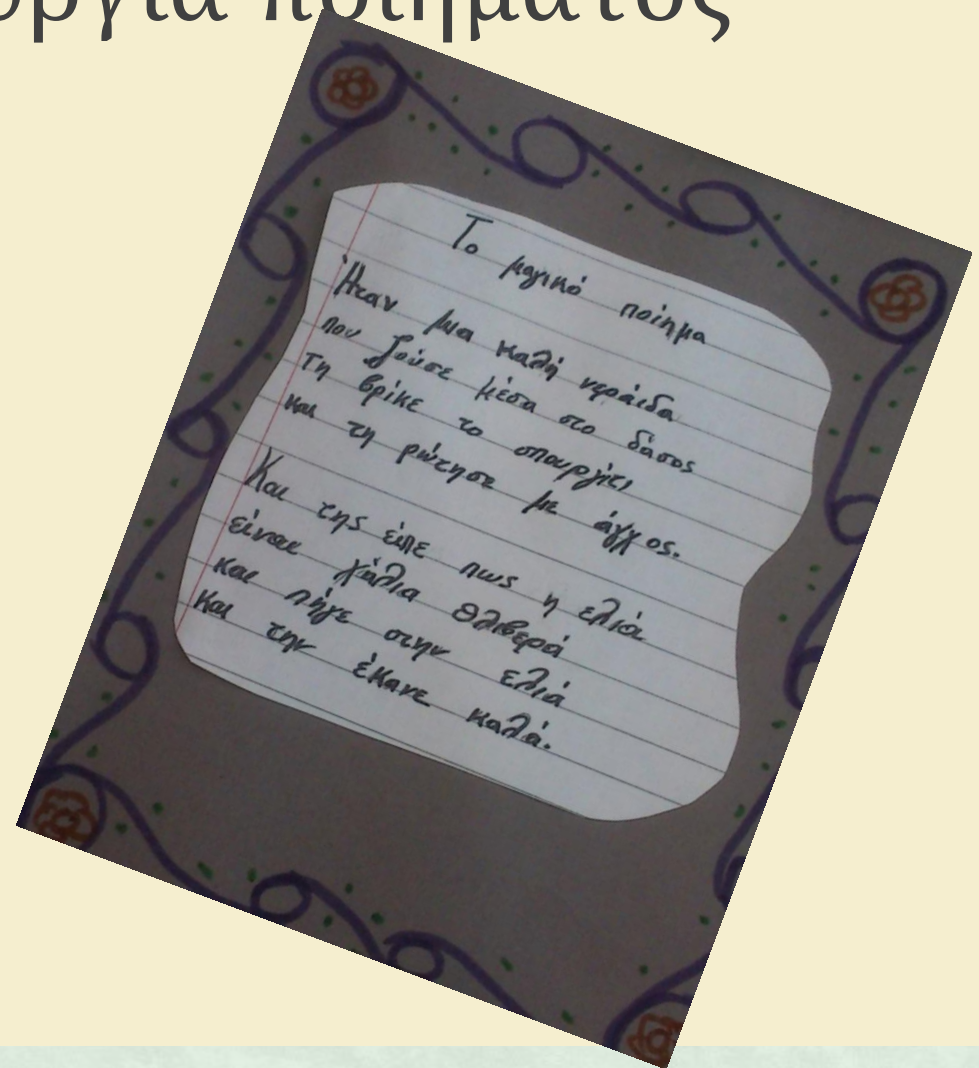 ργία ποιήματος
Το μαγικό ποίημα
Ήταν μια καλή νεράιδα
που ζούσε μέσα στο δάσος
Τη βρίκε το σπουργίτι
και τη ρώτησε με άγχος.
Και της είπε πως η ελιά
είναι χάλια θλιβερά
και πήγε στην ελιά
και την έκανε καλά.